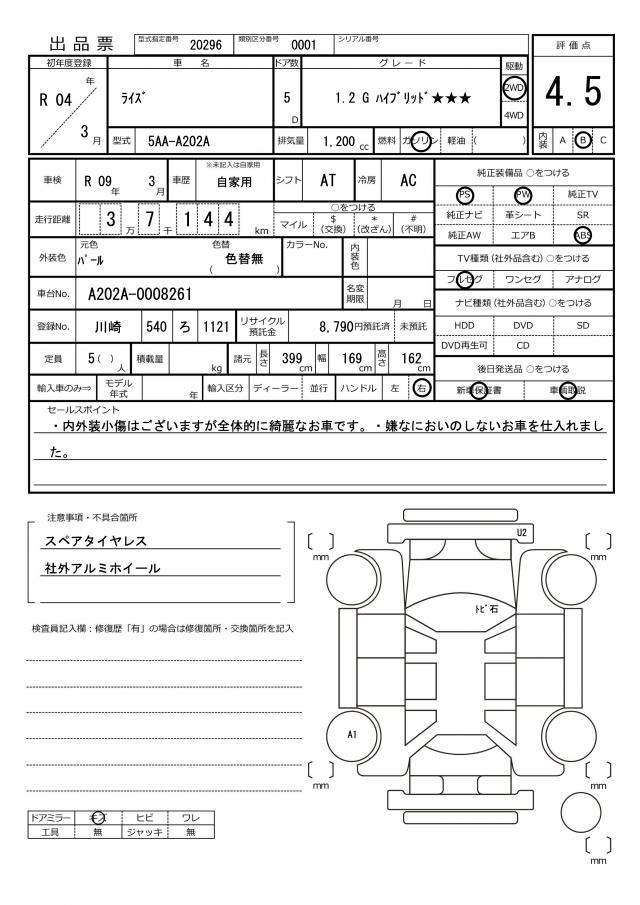 出品票
型式指定番号 20296 類別区分番号 0001 シリアル番号
評価点
4.5
内装 A B C
初年度登録 車名 ドア数 グレード 駆動
R 04 年 3 月
ﾗｲｽﾞ 5 D 1.2 G ﾊｲﾌﾞﾘｯﾄﾞ★★★ 2WD
4WD
型式 5AA-A202A 排気量 1,200 cc 燃料 ガソリン 軽油 ( )
車検 R 09 年 3 月 車歴 ※未記入は自家用 自家用 シフト AT 冷房 AC
走行距離 3 万 7 千 1 4 4 km
○をつける
マイル $ (交換) * (改ざん) # (不明)
外装色 元色 ﾊﾟｰﾙ 色替 ( 色替無 ) カラーNo. 内装色
車台No. A202A-0008261 名変期限 月 日
登録No. 川崎 540 ろ 1121 リサイクル預託金 8,790円預託済 未預託
定員 5 ( ) 人 積載量 kg 諸元 長さ 399 cm 幅 169 cm 高さ 162 cm
輸入車のみ⇒ モデル年式 年 輸入区分 ディーラー 並行 ハンドル 左 右
純正装備品 ○をつける
PS PW 純正TV
純正ナビ 革シート SR
純正AW エアB ABS
TV種類 (社外品含む) ○をつける
フルセグ ワンセグ アナログ
ナビ種類 (社外品含む) ○をつける
HDD DVD SD
DVD再生可 CD
後日発送品 ○をつける
新車保証書 車輌取説
セールスポイント
・内外装小傷はございますが全体的に綺麗なお車です。・嫌なにおいのしないお車を仕入れまし
た。
注意事項・不具合箇所
スペアタイヤレス
社外アルミホイール
検査員記入欄：修復歴「有」の場合は修復箇所・交換箇所を記入
U2
mm mm
ﾄﾋﾞ石
A1
mm mm
mm
ドアミラー キズ ヒビ ワレ
工具 無 ジャッキ 無